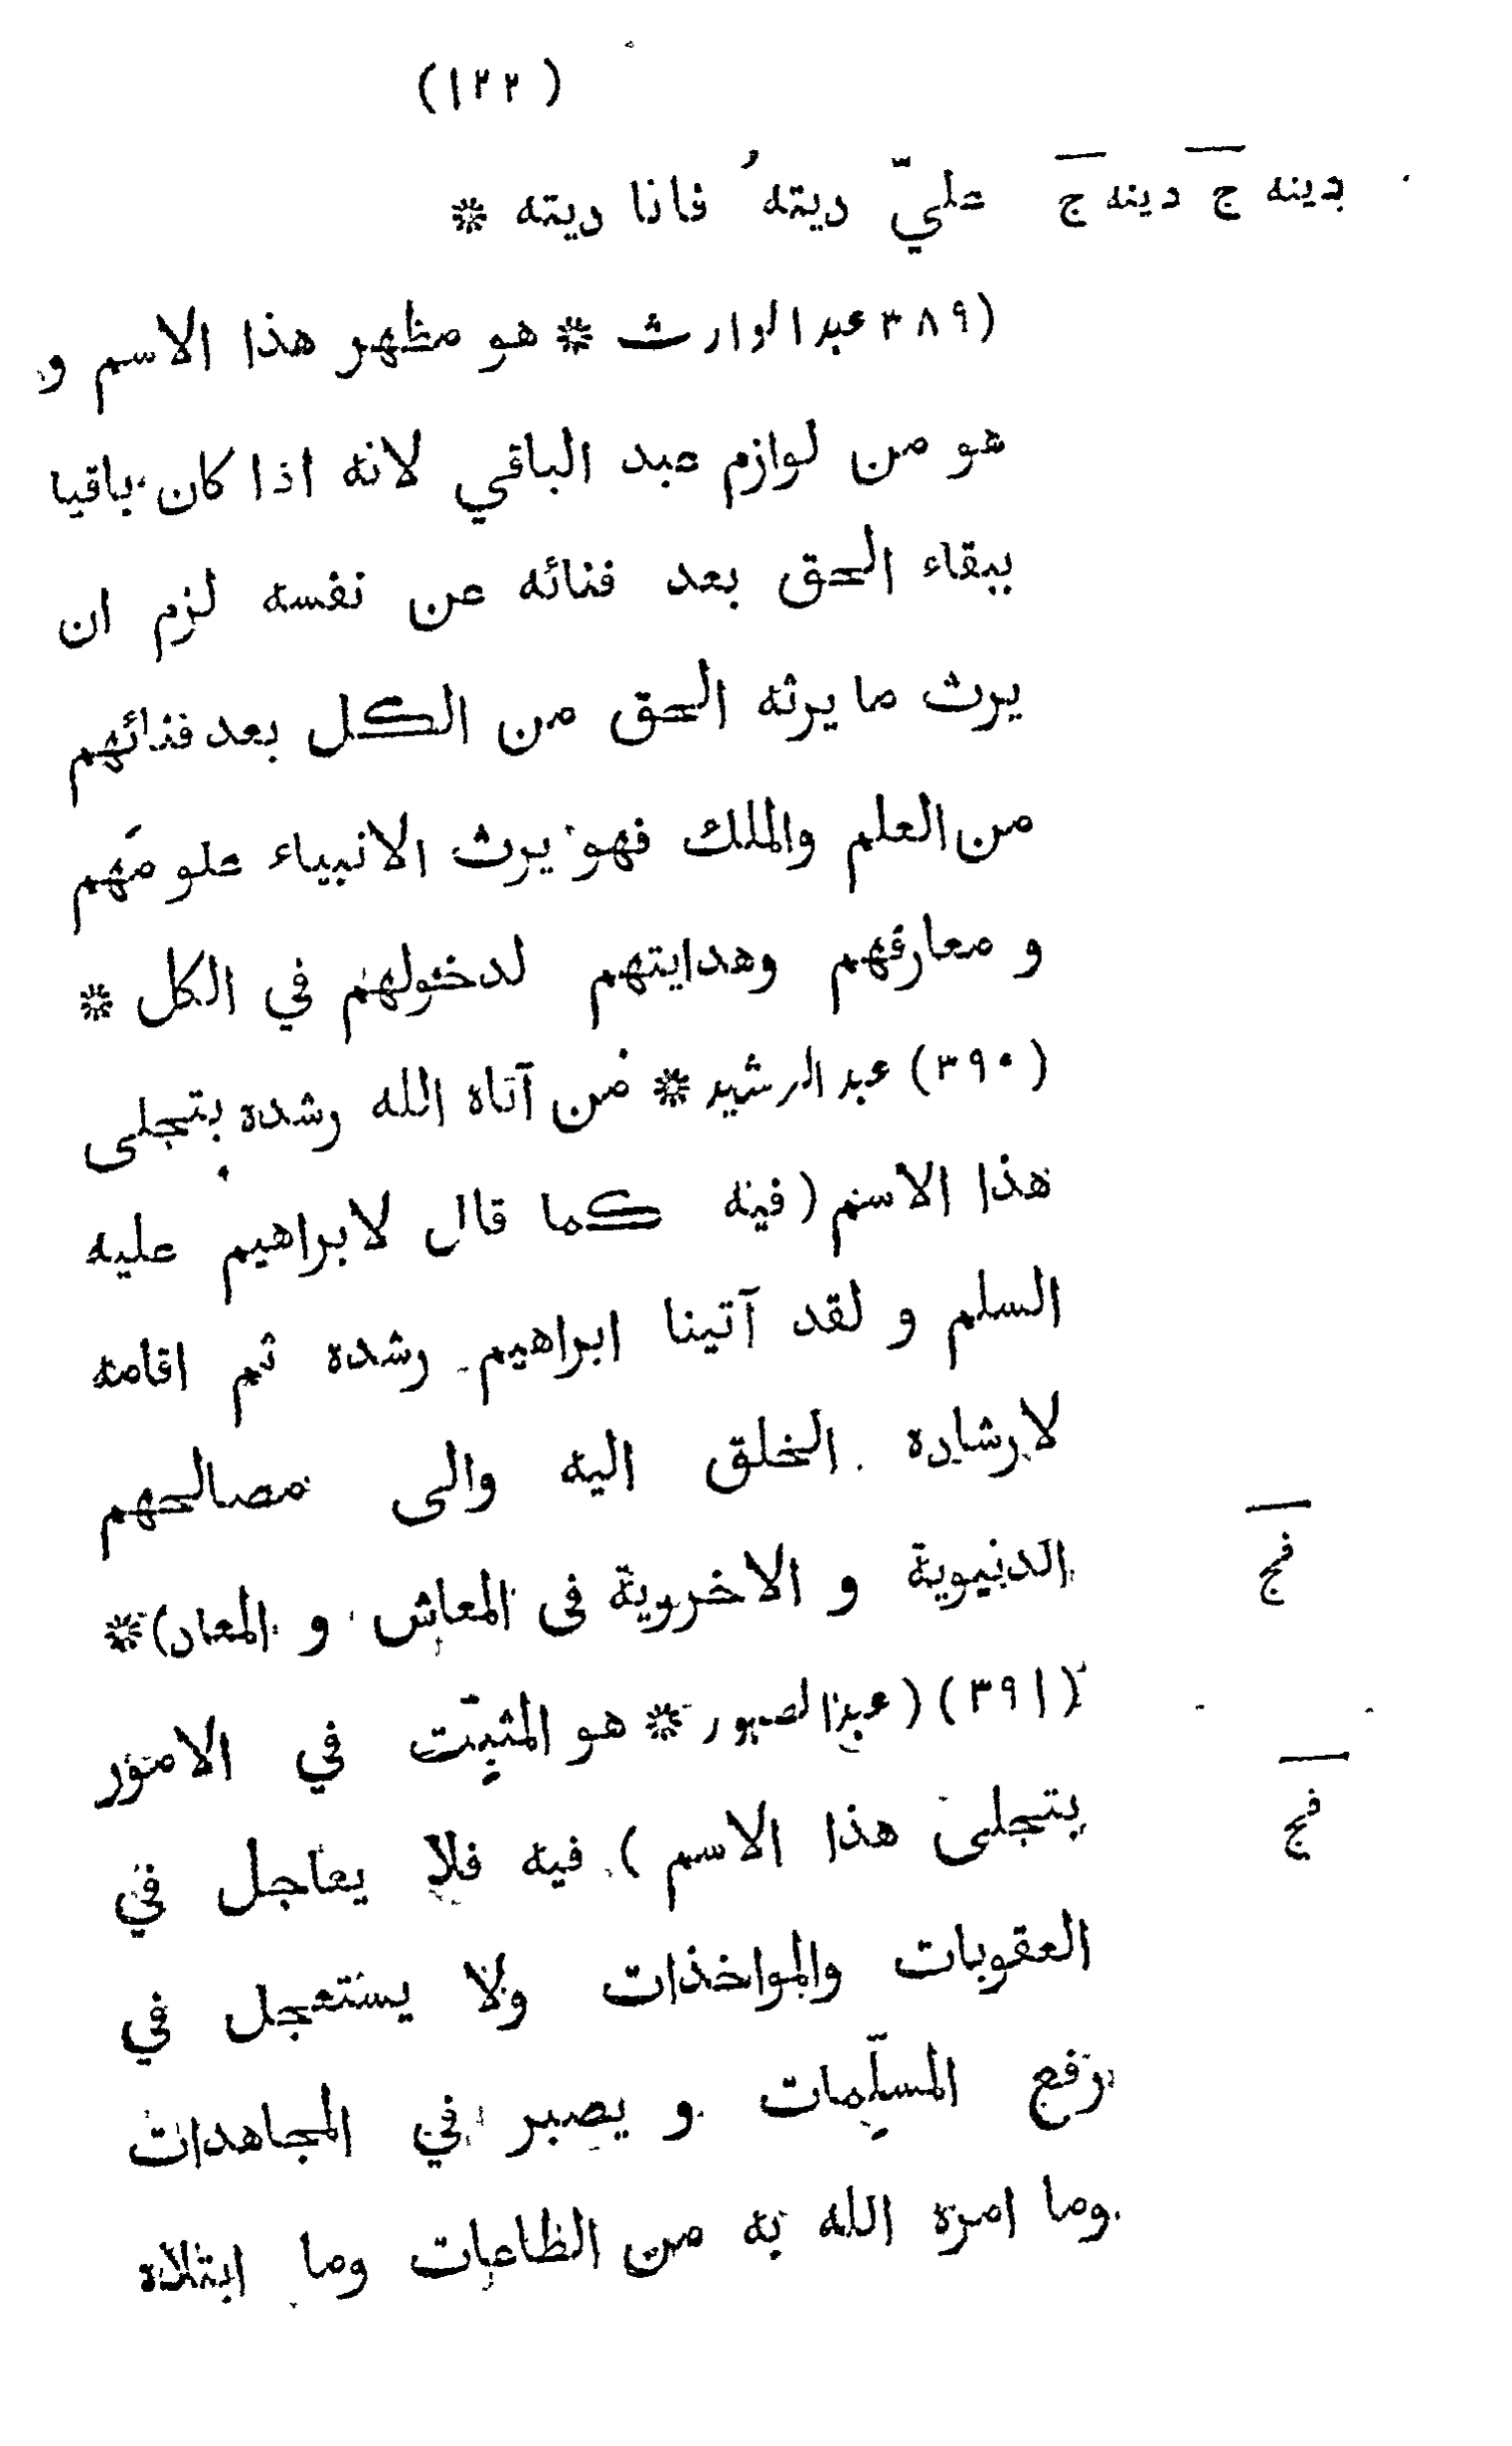 (١٢٢)
دينه ج دينه ج عليّ ديتهُ فانا ديته *
(٣٨٩ عبد الوارث * هو مظهر هذا الاسم و
هو من لوازم عبد الباقي لانه اذا كان باقيا
ببقاء الحق بعد فنائه عن نفسه لزم ان
يرث ما يرثه الحق من الكل بعد فنائهم
من العلم والملك فهو يرث الانبياء علومَهم
و معارفهم وهدايتهم لدخولهم في الكل *
(٣٩٠) عبد الرشيد * من آتاه الله رشده بتجلى
هذا الاسم (فيه كما قال لابراهيم عليه
السلم و لقد آتينا ابراهيم رشده ثم اقامه
لارشاده الخلق اليه والى مصالحهم
الدنيوية و الاخروية فى المعاش و المعاد) *
فج
(٣٩١) (عبد الصبور * هو المثبّت في الامور
بتجلى هذا الاسم) فيه فلا يعاجل في
فج
العقوبات والمواخذات ولا يستعجل في
رفع المسلّمات و يصبر في المجاهدات
وما امره الله به من الطاعات وما ابتلاه